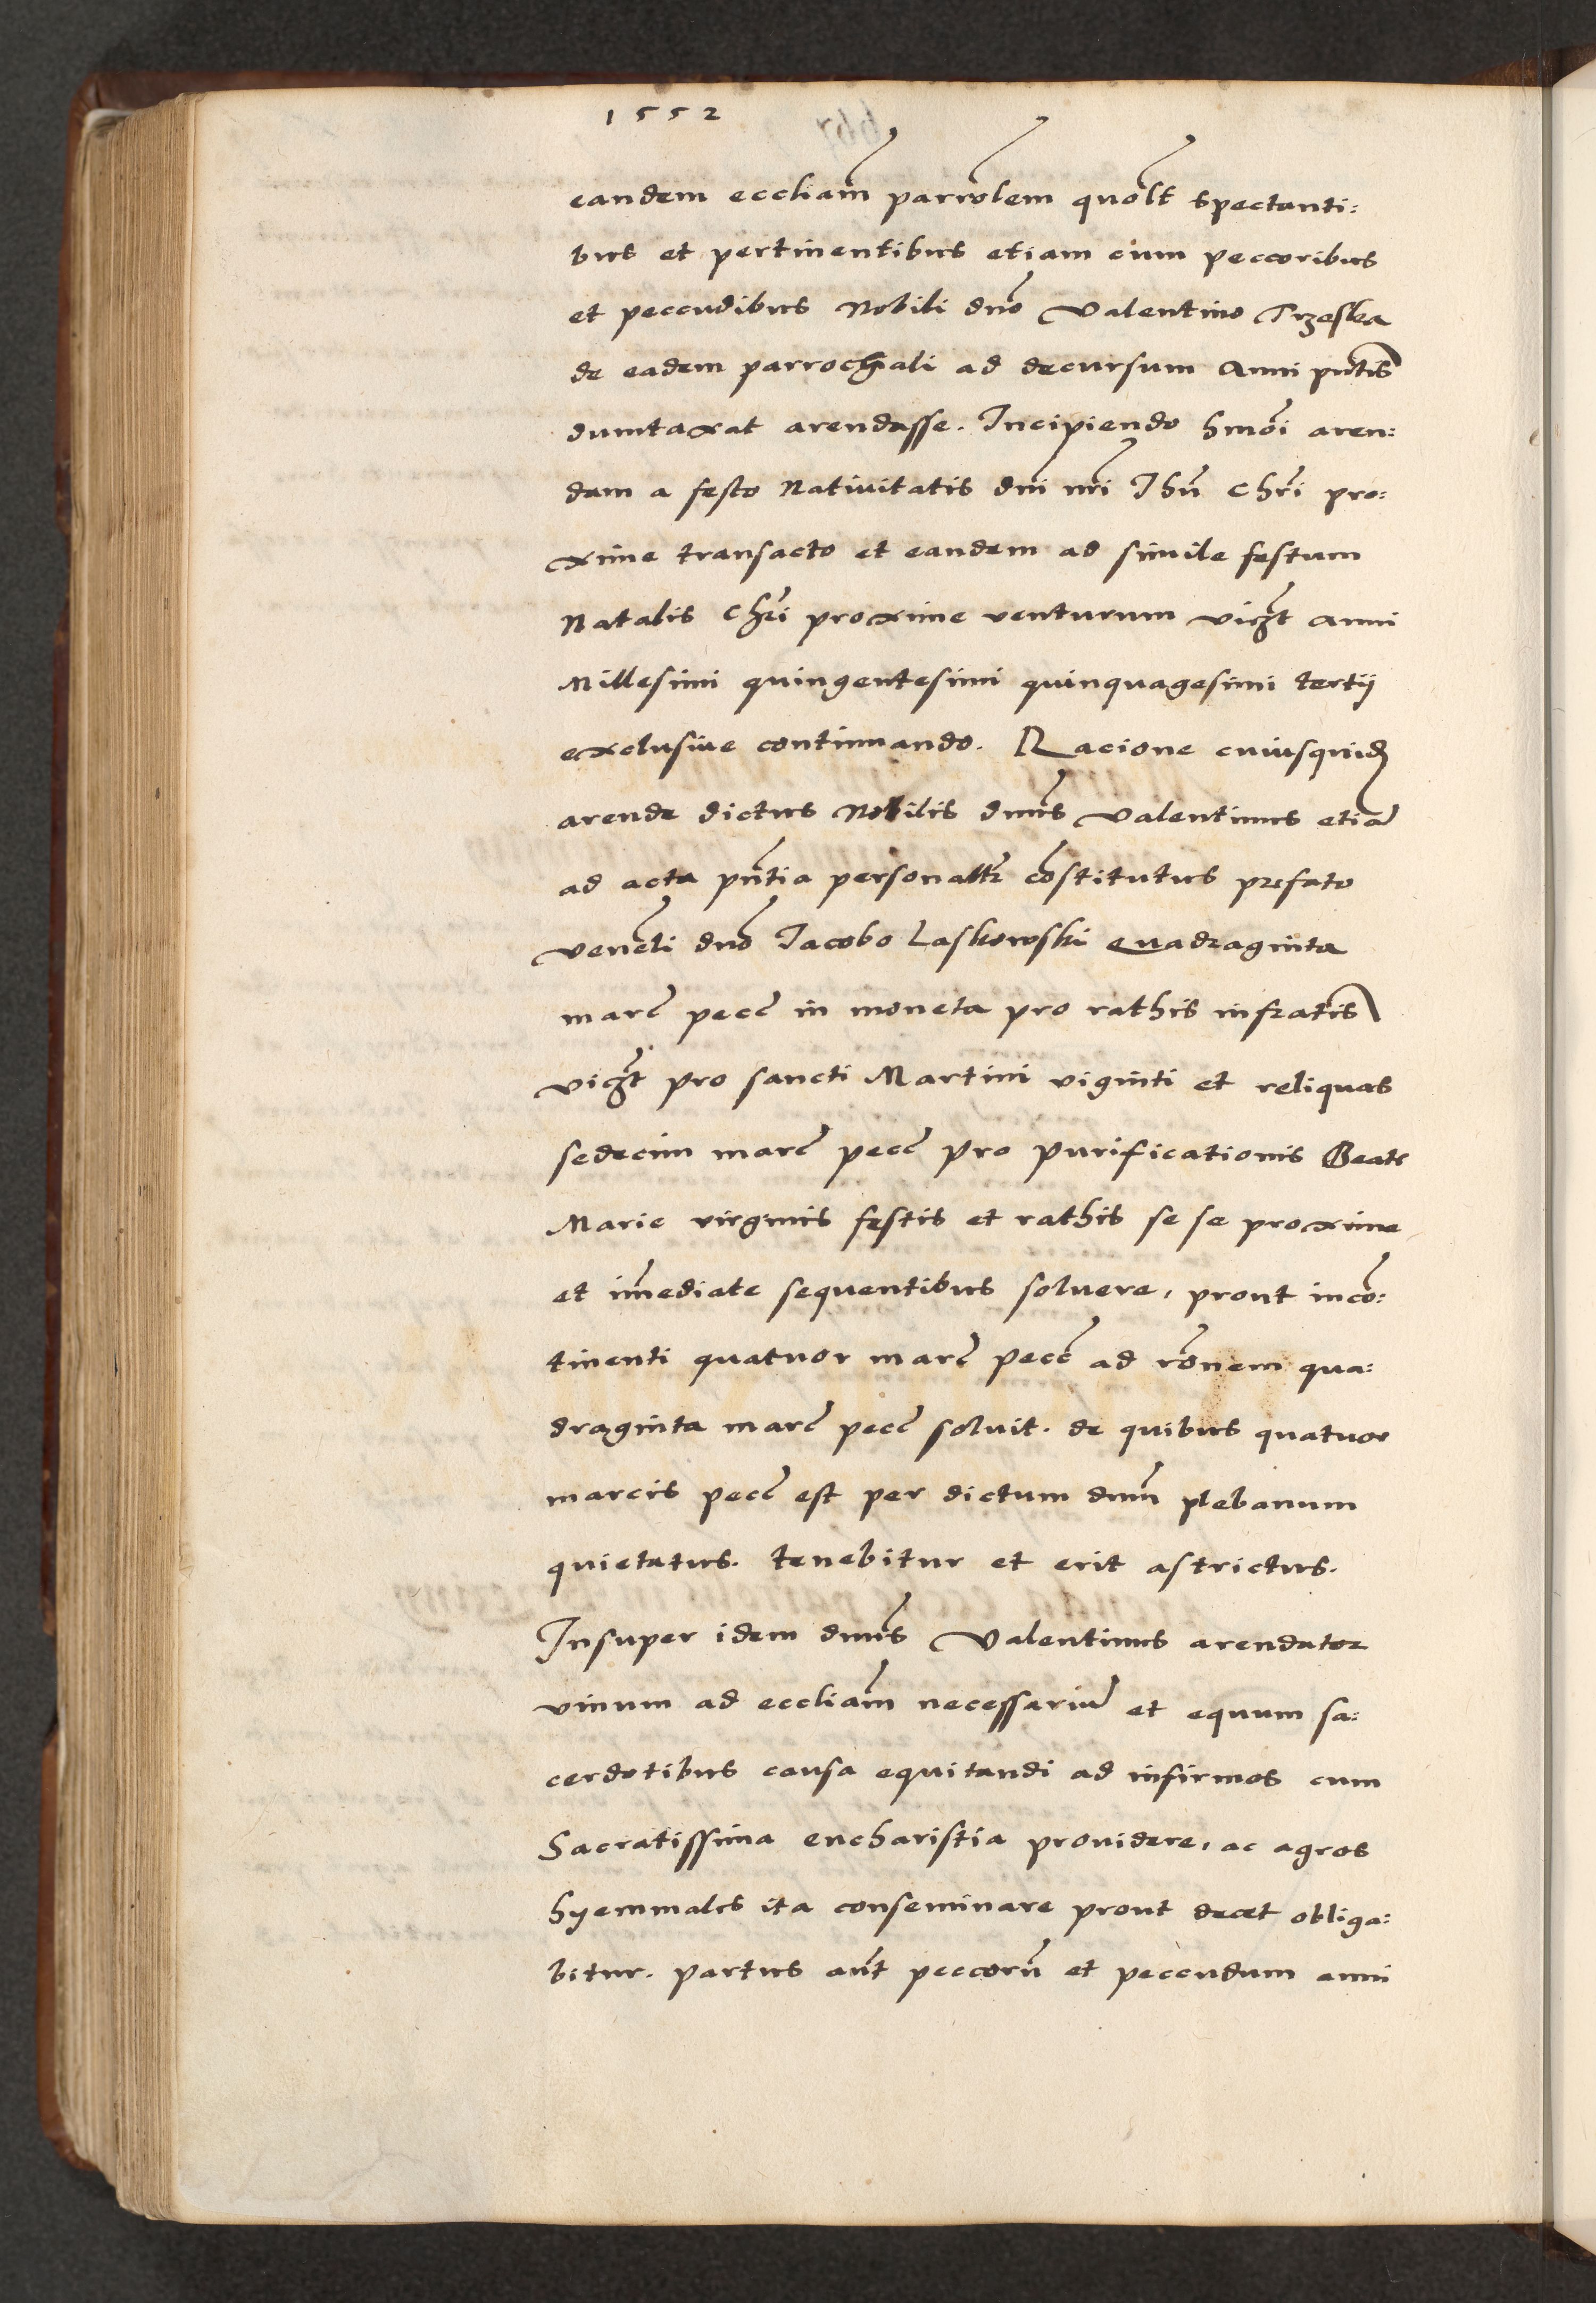 1552
eandem eccliam̃ parrõlem quõlt spectanti:
bus et pertinentibus etiam cum peccoribus
et peccudibus Nobili dnõ Valentino Trzeska
de eadem parrochali ad decursum Anni pñtis
dumtaxat arendasse. Incipiendo hmõi aren:
dam a festo Nativitatis dni nri Ihũ Chri pro:
xime transacto et eandem ad simile festum
Natalis Chri proxime venturum vidzt anni
Millesimi quingentesimi quinquagesimi tertij
exclusive continuando. Racione cuiusquid
arende dictus Nobilis dnũs Valentinus etiã
ad acta pñtia personaltr cõstitutus prefato
venerli dnõ Jacobo Laskowski quadraginta
marc pecc in moneta pro rathis infratis
vidzt pro sancti Martini viginti et reliquas
sedecim marc pecc pro purificationis Beate
Marie virginis festis et rathis se se proxime
et im̃ediate sequentibus soluere, prout incõ:
tinenti quatuor marc pecc ad rõnem qua:
draginta marc pecc soluit. de quibus quatuor
marcis pecc est per dictum dnũm plebanum
quietatus. tenebitur et erit astrictus.
Insuper idem dnũs Valentinus arendator
vinum ad eccliam̃ necessariũ et equum sa:
cerdotibus causa equitandi ad infirmos cum
Sacratissima eucharistia prouidere, ac agros
hyemmales ita conseminare prout decet obliga:
bitur. partus aut̃ peccorũ et peccudum anni